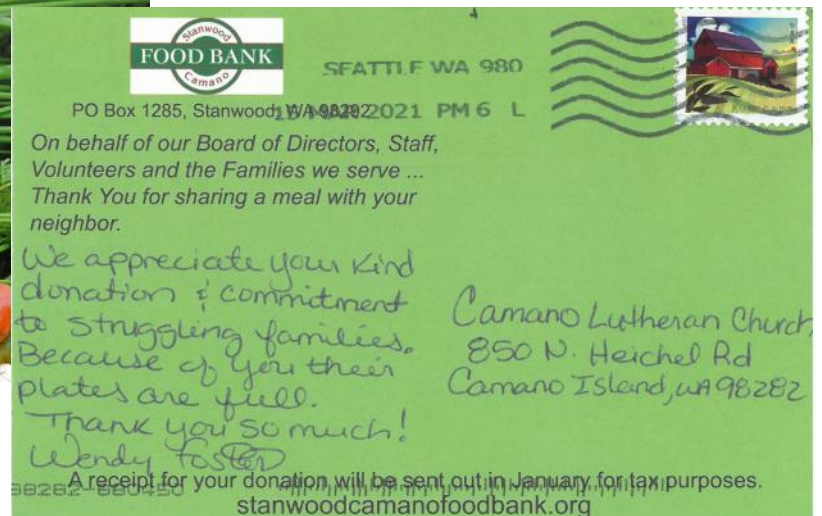 Stanwood
FOOD BANK
Camano
SEATTLE WA 980
PO Box 1285, Stanwood, WA 98292
15 MAR 2021 PM 6 L
On behalf of our Board of Directors, Staff,
Volunteers and the Families we serve ...
Thank You for sharing a meal with your
neighbor.
We appreciate your kind
donation & commitment
to struggling families.
Because of you their
plates are full.
Thank you so much!
Wendy Foster
Camano Lutheran Church
850 N. Heichel Rd
Camano Island, WA 98282
A receipt for your donation will be sent out in January for tax purposes.
stanwoodcamanofoodbank.org